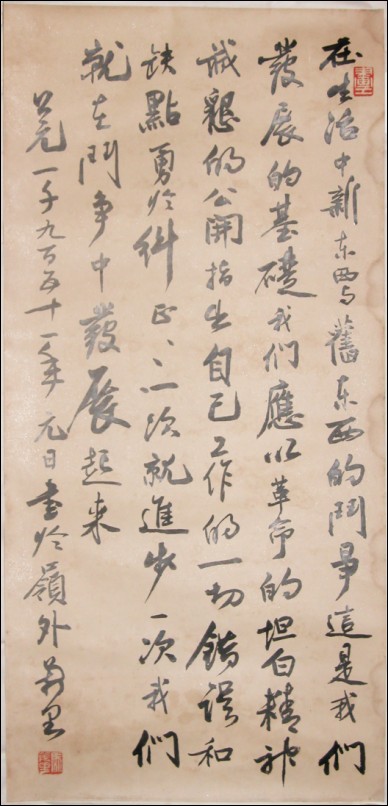 在生活中新东西与舊东西的鬥爭這是我們
發展的基礎我們應以革命的坦白精神
誠懇的公開指出自己工作的一切錯误和
缺點勇於糾正正一次就進步一次我們
就在鬥爭中發展起来
公元一千九百五十一年元日書於嶺外